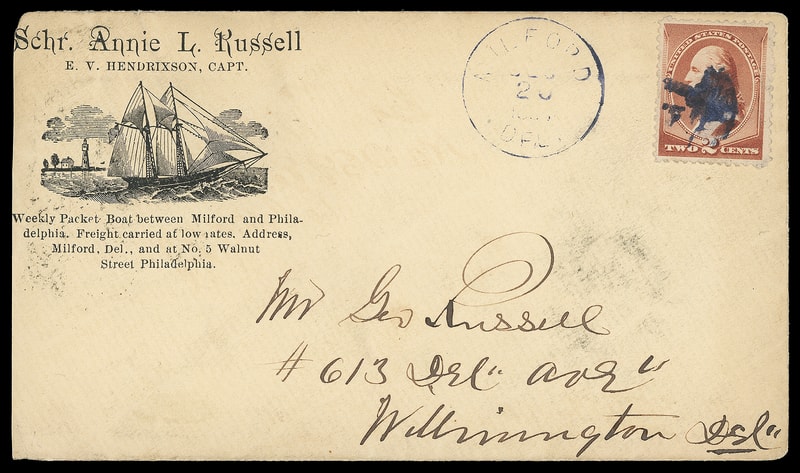 Schr. Annie L. Russell
E. V. HENDRIXSON, CAPT.
Weekly Packet Boat between Milford and Phila-
delphia. Freight carried at low rates. Address,
Milford, Del., and at No. 5 Walnut
Street Philadelphia.
MILFORD
20
DEL.
UNITED STATES POSTAGE
TWO 2 CENTS
Mr Geo Russell
# 613 Del. Ave
Wilmington Del.